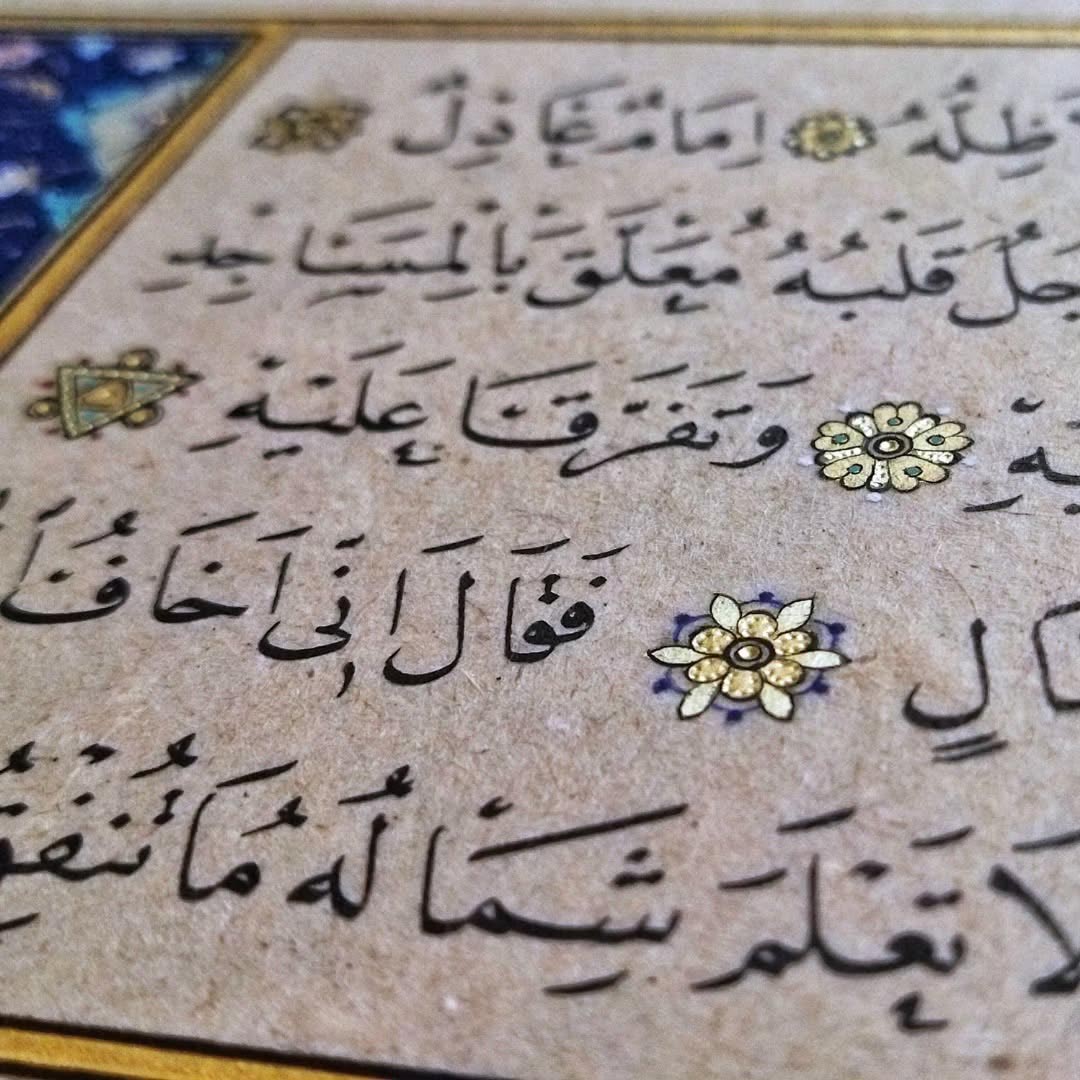 ظِلُّهُ اِمَامٌ عَادِلٌ
قَلْبُهُ مُعَلَّقٌ بِالْمَسَاجِدِ
وَتَفَرَّقَا عَلَيْهِ
فَقَالَ اِنِّى اَخَافُ
لَا تَعْلَمَ شِمَالُهُ مَا تُنْفِقُ